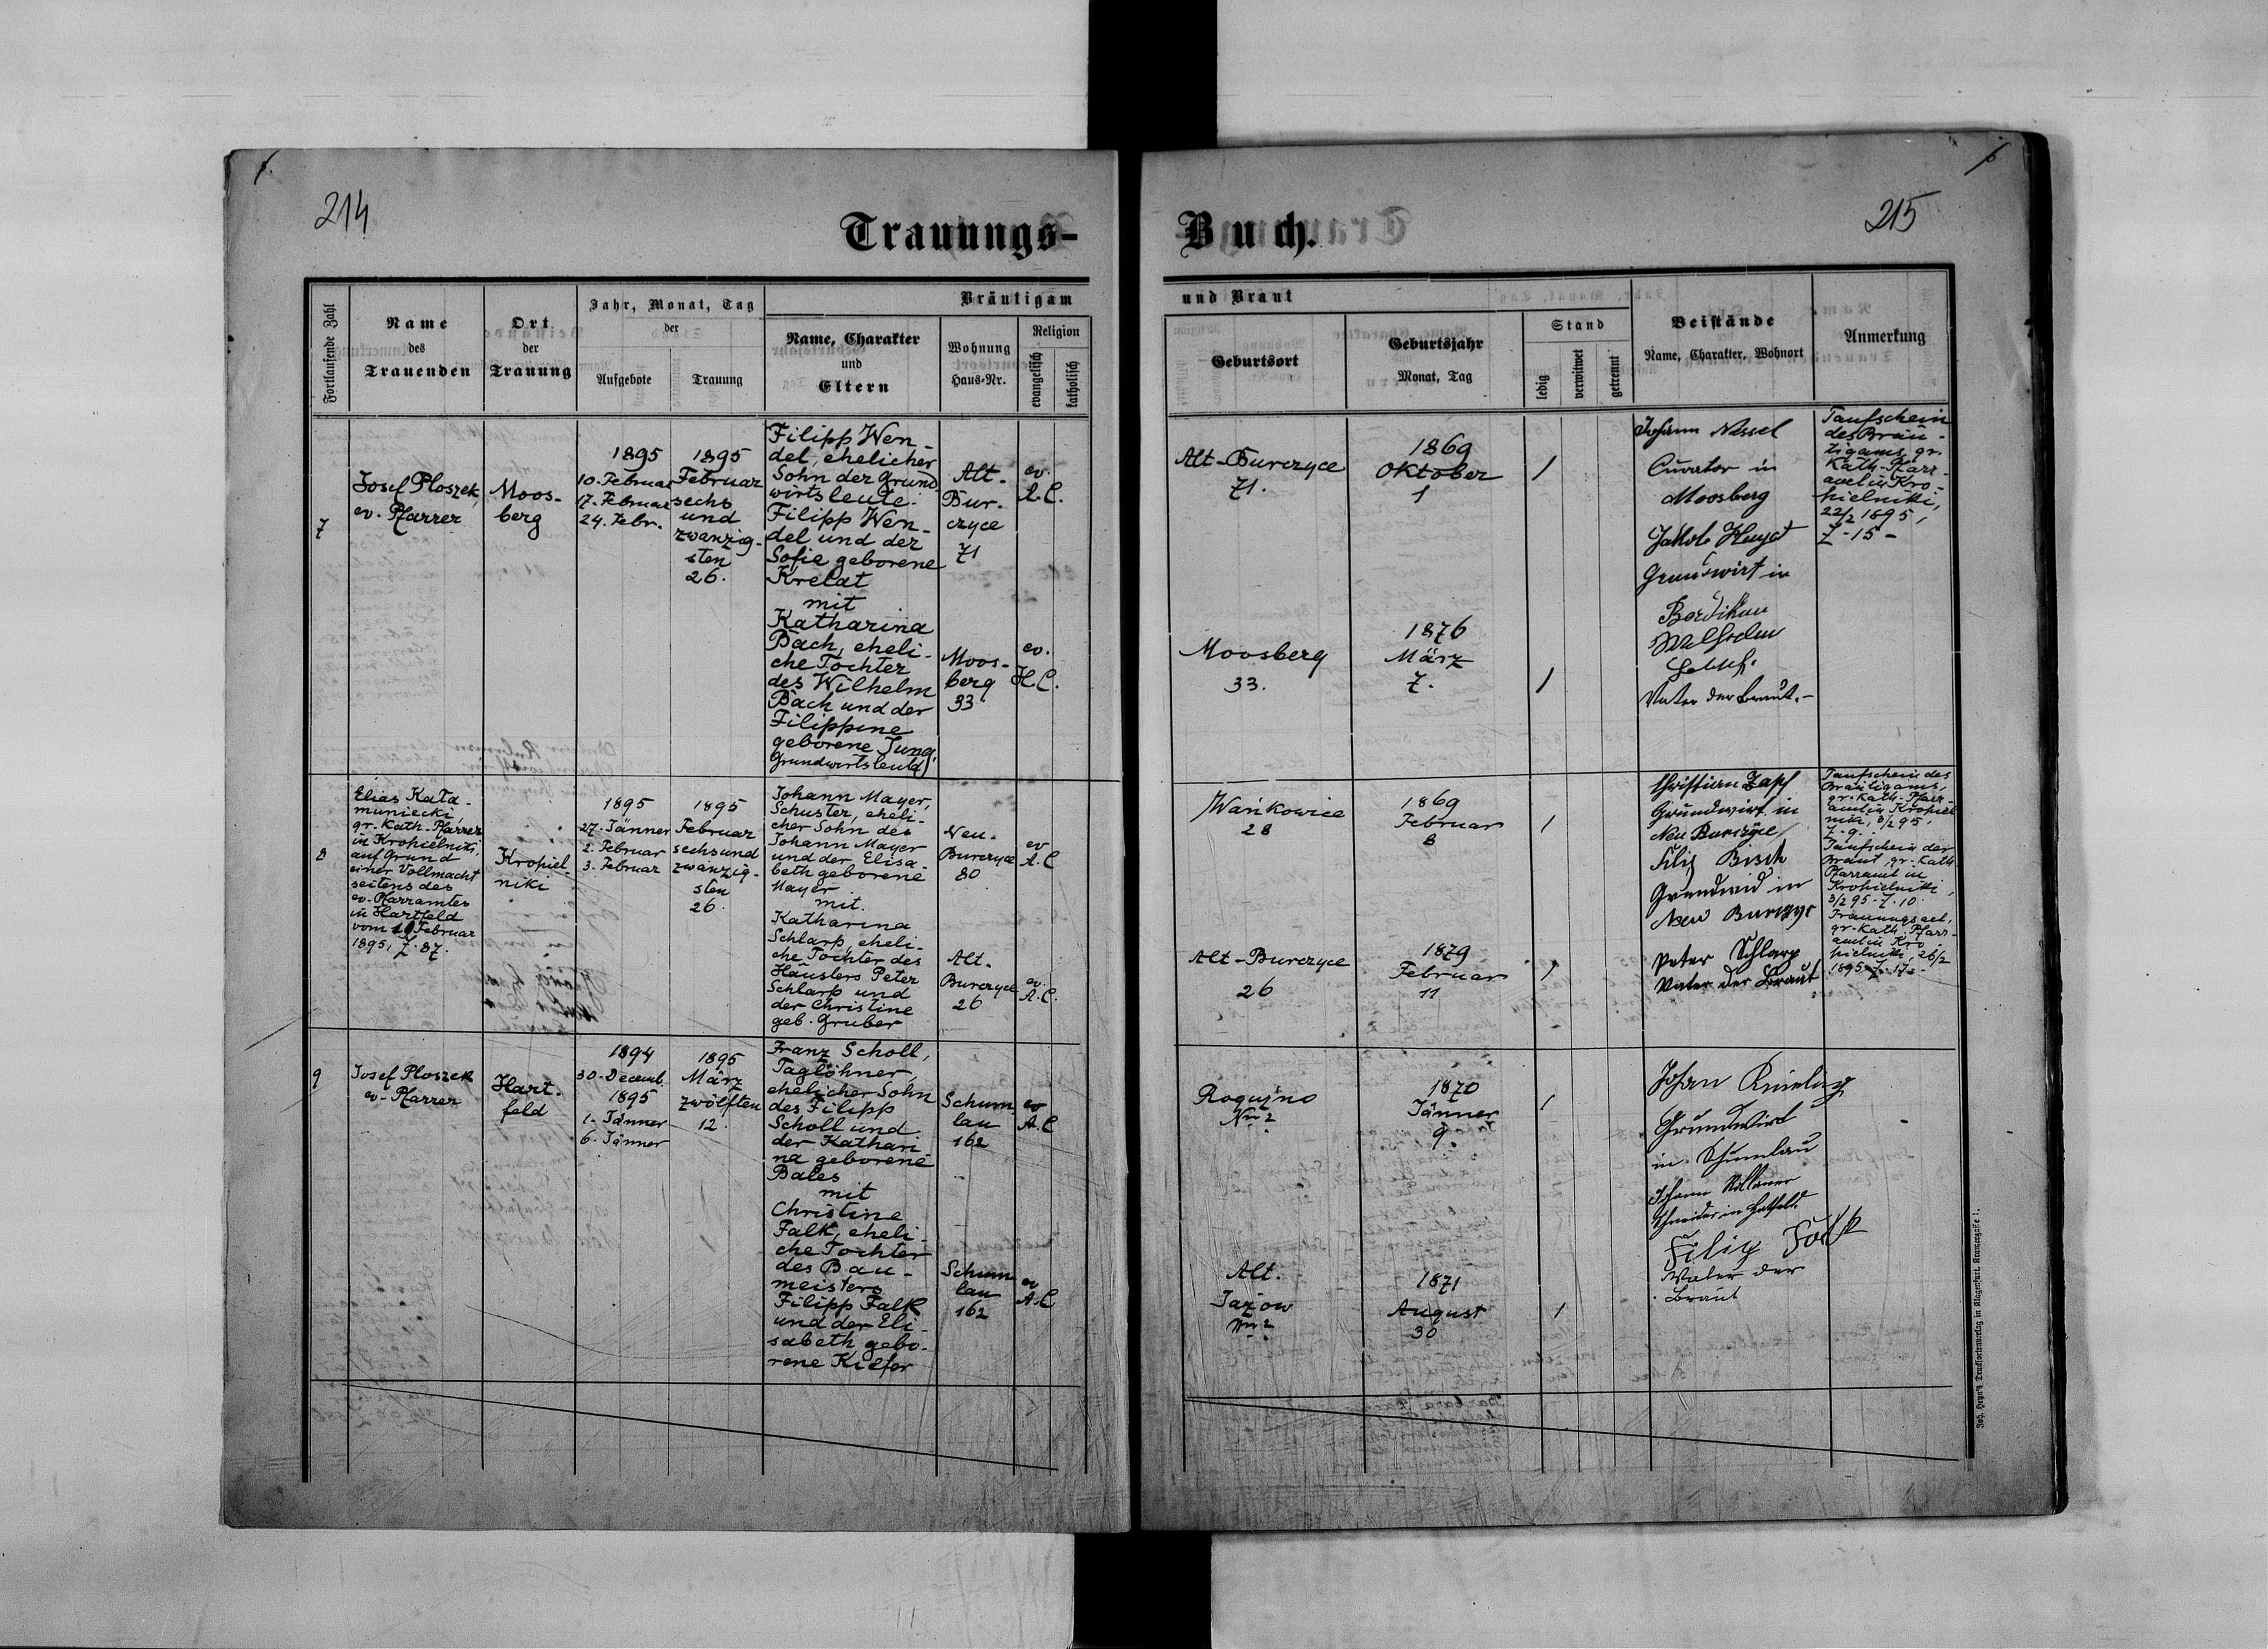 214
Trauungs-
Fortlaufende Zahl
Name
des
Trauenden
Ort
der
Trauung
Jahr, Monat, Tag
der
Aufgebote
Trauung
Bräutigam
Name, Charakter
und
Eltern
Wohnung
Haus-Nr.
Religion
evangelisch
katholisch
7
Josef Ploszek,
ev. Pfarrer
Moos-
berg
1895
10. Februar
17. Februar
24. Febr.
1895
Februar
sechs
und
zwanzig-
sten
26.
Filipp Wen-
del, ehelicher
Sohn der Grund
wirtsleute:
Filipp Wen-
del und der
Sofie geborene
Krelat
mit
Katharina
Bach, eheli-
che Tochter
des Wilhelm
Bach und der
Filippine
geborene Jung,
Grundwirtsleute)
Alt-
Bur-
czyce
71
ev.
A.C.
Moos-
berg
33
ev.
H.C.
8
Elias Kata-
muniecki,
gr.-Kath-Pfarrer
in Kropielniki,
auf Grund
einer Vollmacht
seitens des
ev-Pfarramtes
in Hartfeld
vom Februar
1895, Z. 87.
Kropiel-
niki
1895
27. Jänner
2. Februar
3. Februar
1895
Februar
sechsund
zwanzig-
sten
26.
Johann Mayer,
Schuster, eheli-
cher Sohn des
Johann Mayer
und der Elisa-
beth geborene
Mayer
mit.
Katharina
Schlarp, eheli-
che Tochter des
Häuslers Peter
Schlarp und
der Christine
geb. Gruber
Neu-
Burczyce
80
ev
A.C
Alt-
Burczyce
26
ev.
A.C.
9
Josef Ploszek
ev-Pfarrer
Hart-
feld
1894
30. Decemb.
1895
1. Jänner
6. Jänner
1895
März
zwölften
12.
Franz Scholl,
Taglöhner,
ehelicher Sohn
des Filipp
Scholl und
der Kathari
na geborene
Bales
mit
Christine
Falk, eheli-
che Tochter
des Bau-
meisters
Filipp Falk
und der Eli-
sabeth gebo-
rene Kiefer
Schum
lau
162
ev
A.C
Schum
lau
162
ev
A.C
215
Buch.
und Braut
Geburtsort
Geburtsjahr
Monat, Tag
Stand
ledig
verwitwet
getrennt
Beistände
Name, Charakter, Wohnort
Anmerkung
Alt-Burczyce
71.
1869
Oktober
1
/
Moosberg
33.
1876
März
7.
/
Johann Nessel
Curator in
Moosberg
Jakob
Grundwirt in
Wilhelm
Vater der Braut.-
Taufschein
des Bräu-
tigams, gr.
Kath-Pfarr-
amt in Kro-
pielniki,
22/2 1895,
Z-15-
Wańkowice
28
1869
Februar
8
/
Alt-Burczyce
26
1879
Februar
11
/
Christian Zapf
Grundwirt in
Neu Burczyce
Filip Bisch
in
Neu
Peter Schlarp
Vater der Braut
Taufschein des
Bräutigams,
gr.-Kath-Pfarr-
amt in Kropiel
niki, 3/2 95,
Z. 9.
Taufschein der
Braut, gr.-Kath
Pfarramt in
Kropielniki,
3/2 95. Z. 10.
Trauungsact,
gr-Kath. Pfarr-
amt in Kro-
pielniki, 26/2
1895. Z. 17.-
Roguźno
Nr 2
1870
Jänner
9.
/
Alt.
Jazow
Nr 2
1871
August
30
/
Johan
Grundwirt
in Schumlau
Johann
Schneider in Hartfeld.
Filip Falk
Vater der
Braut
-
Joh. Heyn's Drucksortenverlag in Klagenfurt, Kramergasse 1.